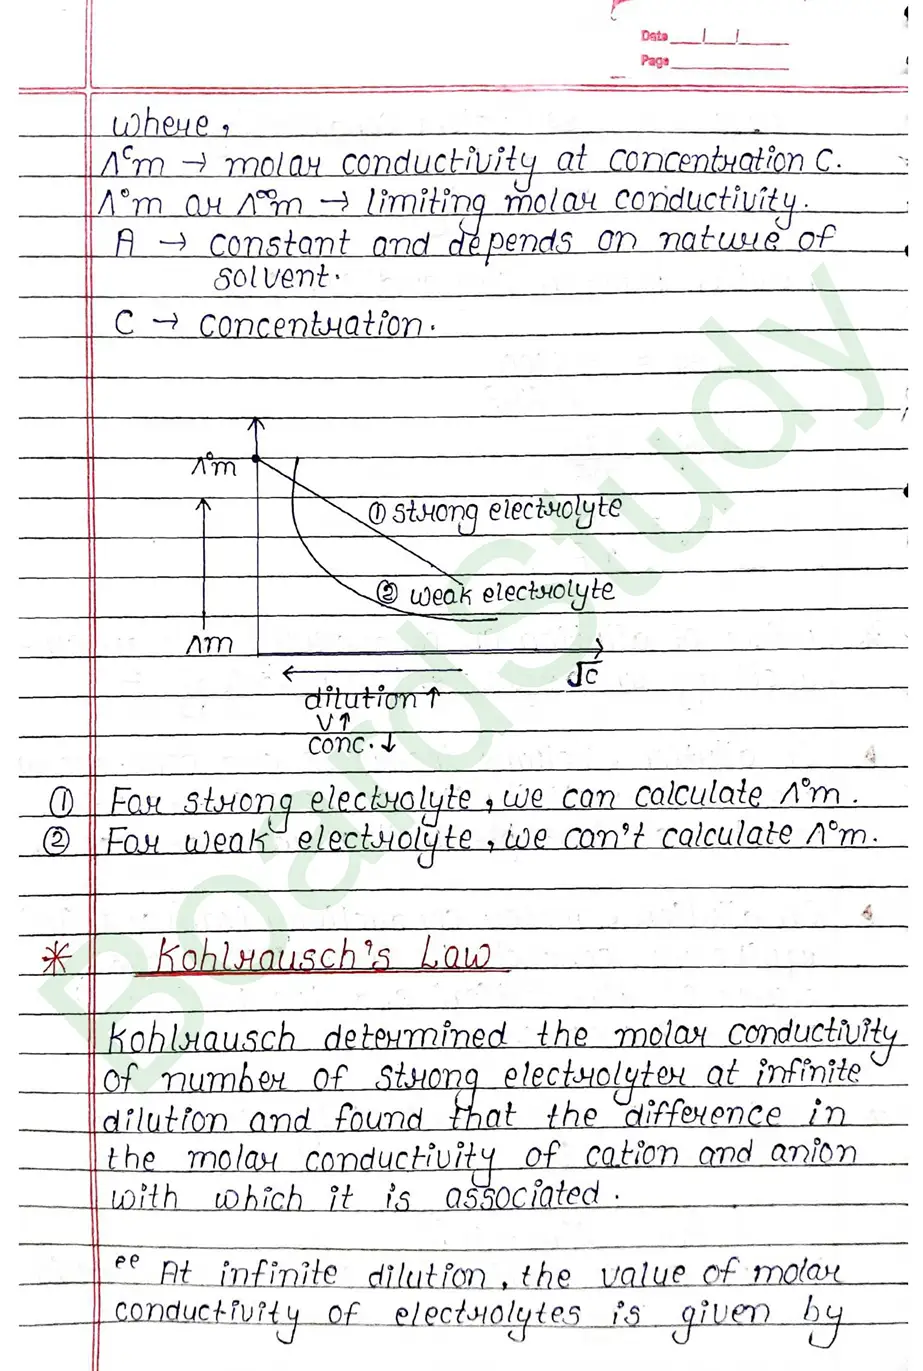 Date
Page
where,
Λᶜm → molar conductivity at concentration C.
Λ°m or Λ∞m → limiting molar conductivity.
A → constant and depends on nature of
solvent.
C → concentration.
Λ°m
① strong electrolyte
② weak electrolyte
Λm
√C
dilution ↑
V↑
conc. ↓
① For strong electrolyte, we can calculate Λ°m.
② For weak electrolyte, we can't calculate Λ°m.
* Kohlrausch's Law
Kohlrausch determined the molar conductivity
of number of strong electrolyter at infinite
dilution and found that the difference in
the molar conductivity of cation and anion
with which it is associated.
“ At infinite dilution, the value of molar
conductivity of electrolytes is given by
BoardStudy